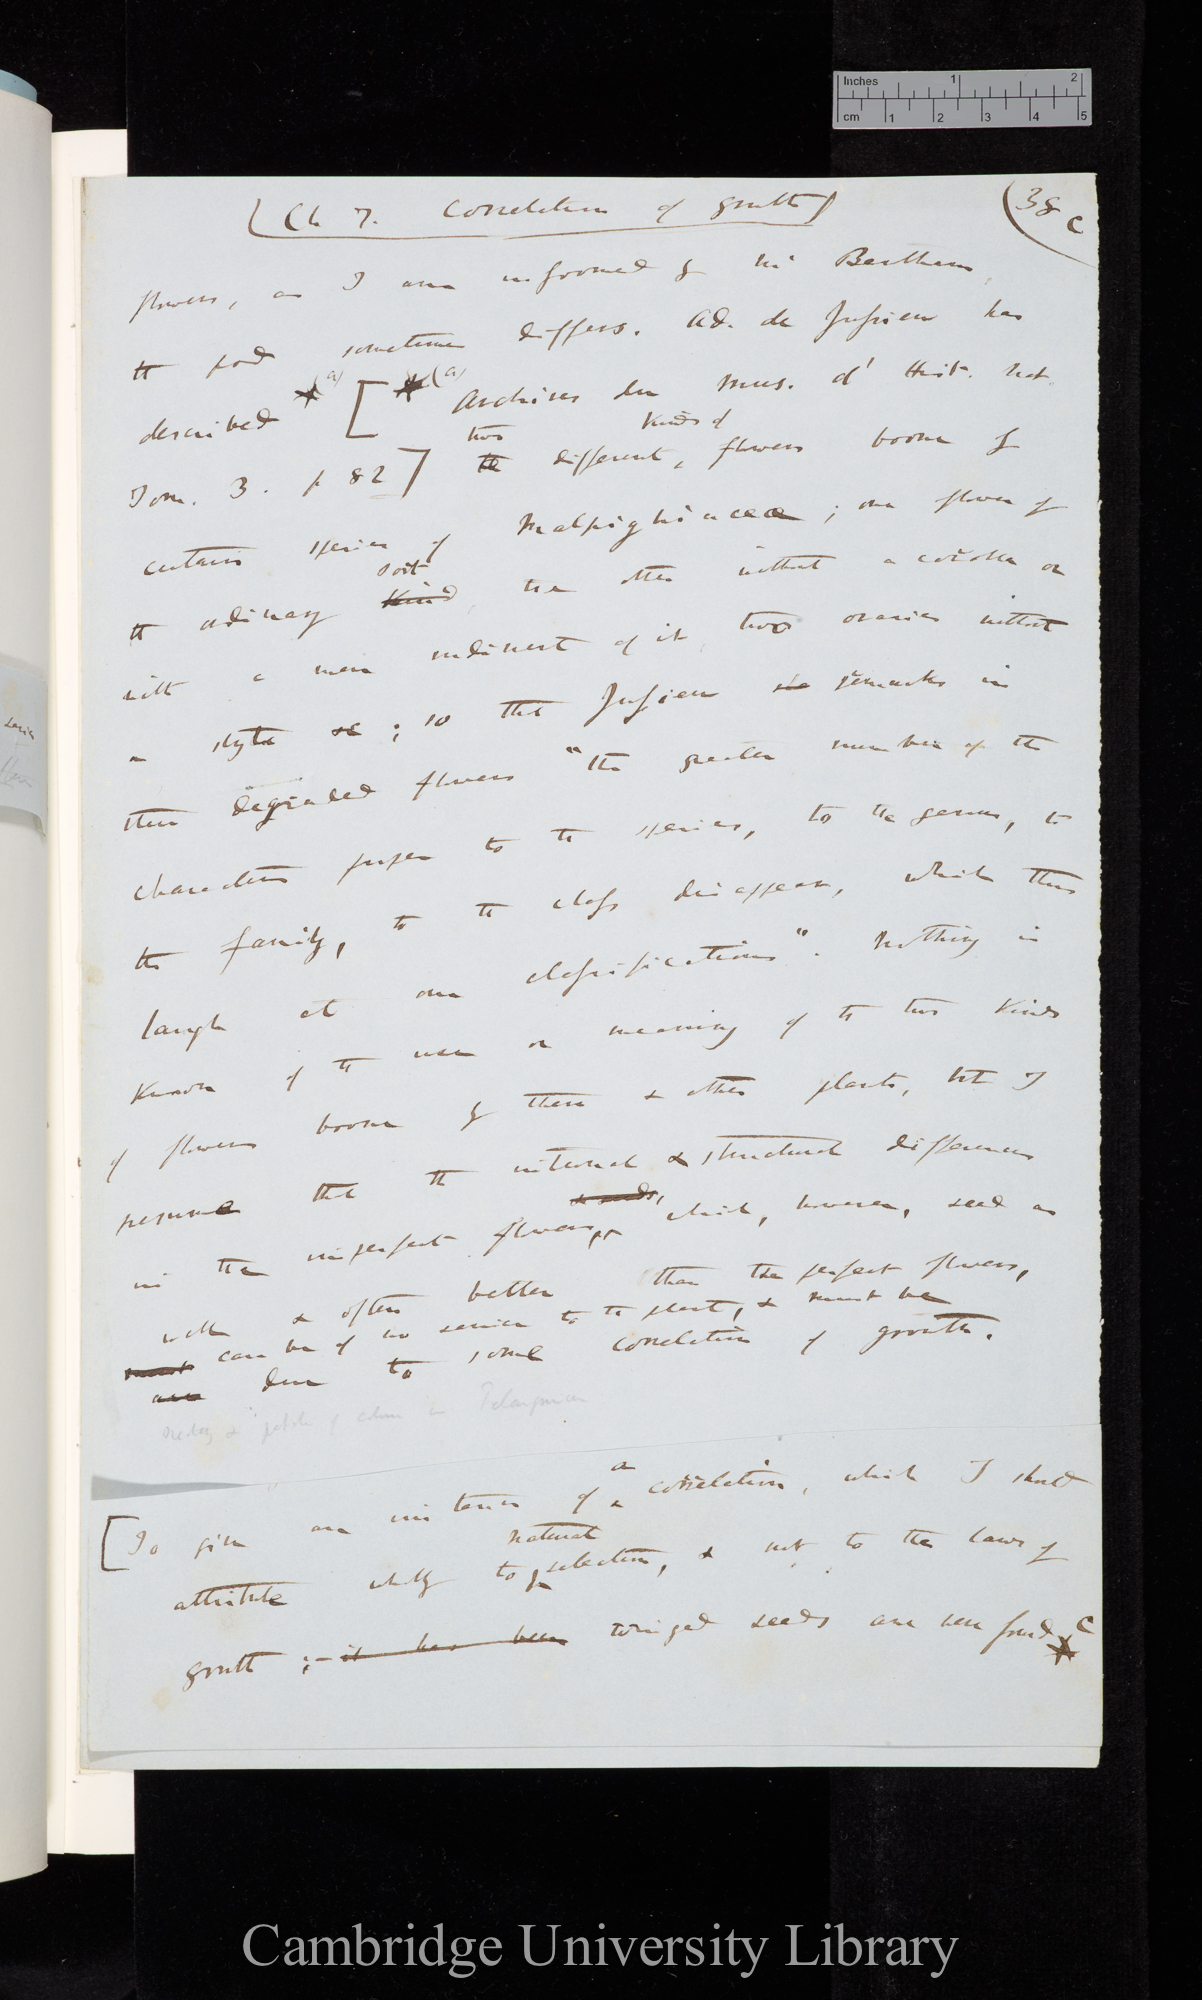 Inches 1 2
cm 1 2 3 4 5
(Ch 7. Correlation of growth)
(38 c
flowers, as I am informed by Mr Bentham,
the pod sometimes differs. Ad. de Jussieu has
described (a) [ (a) Archives du Mus. d' Hist. Nat
Tom. 3. p 82] the two different, kinds of flowers borne by
certain species of Malpighiaceae; one flower of
the ordinary kind sort, the other without a corolla or
with a mere rudiment of it, two ovaries without
a style &c; so that Jussieu remarks in
these degraded flowers "the greater number of the
characters proper to the species, to the genus, to
the family, to the class disappear, which thus
laugh at our classifications". Nothing is
known of the use or meaning of the two kinds
of flowers borne by these & other plants, but I
presume that the internal & structural differences
in the imperfect flowers, & seeds, which, however, seed as
well & often better than the perfect flowers,
must can be of no service to the plant, & must be
are due to some correlation of growth.
& patch of colour in Pelargonium
[To give an instance of a correlation, which I should
attribute wholly to natural selection, & not to the laws of
growth;- it has been winged seeds are never found C
Cambridge University Library